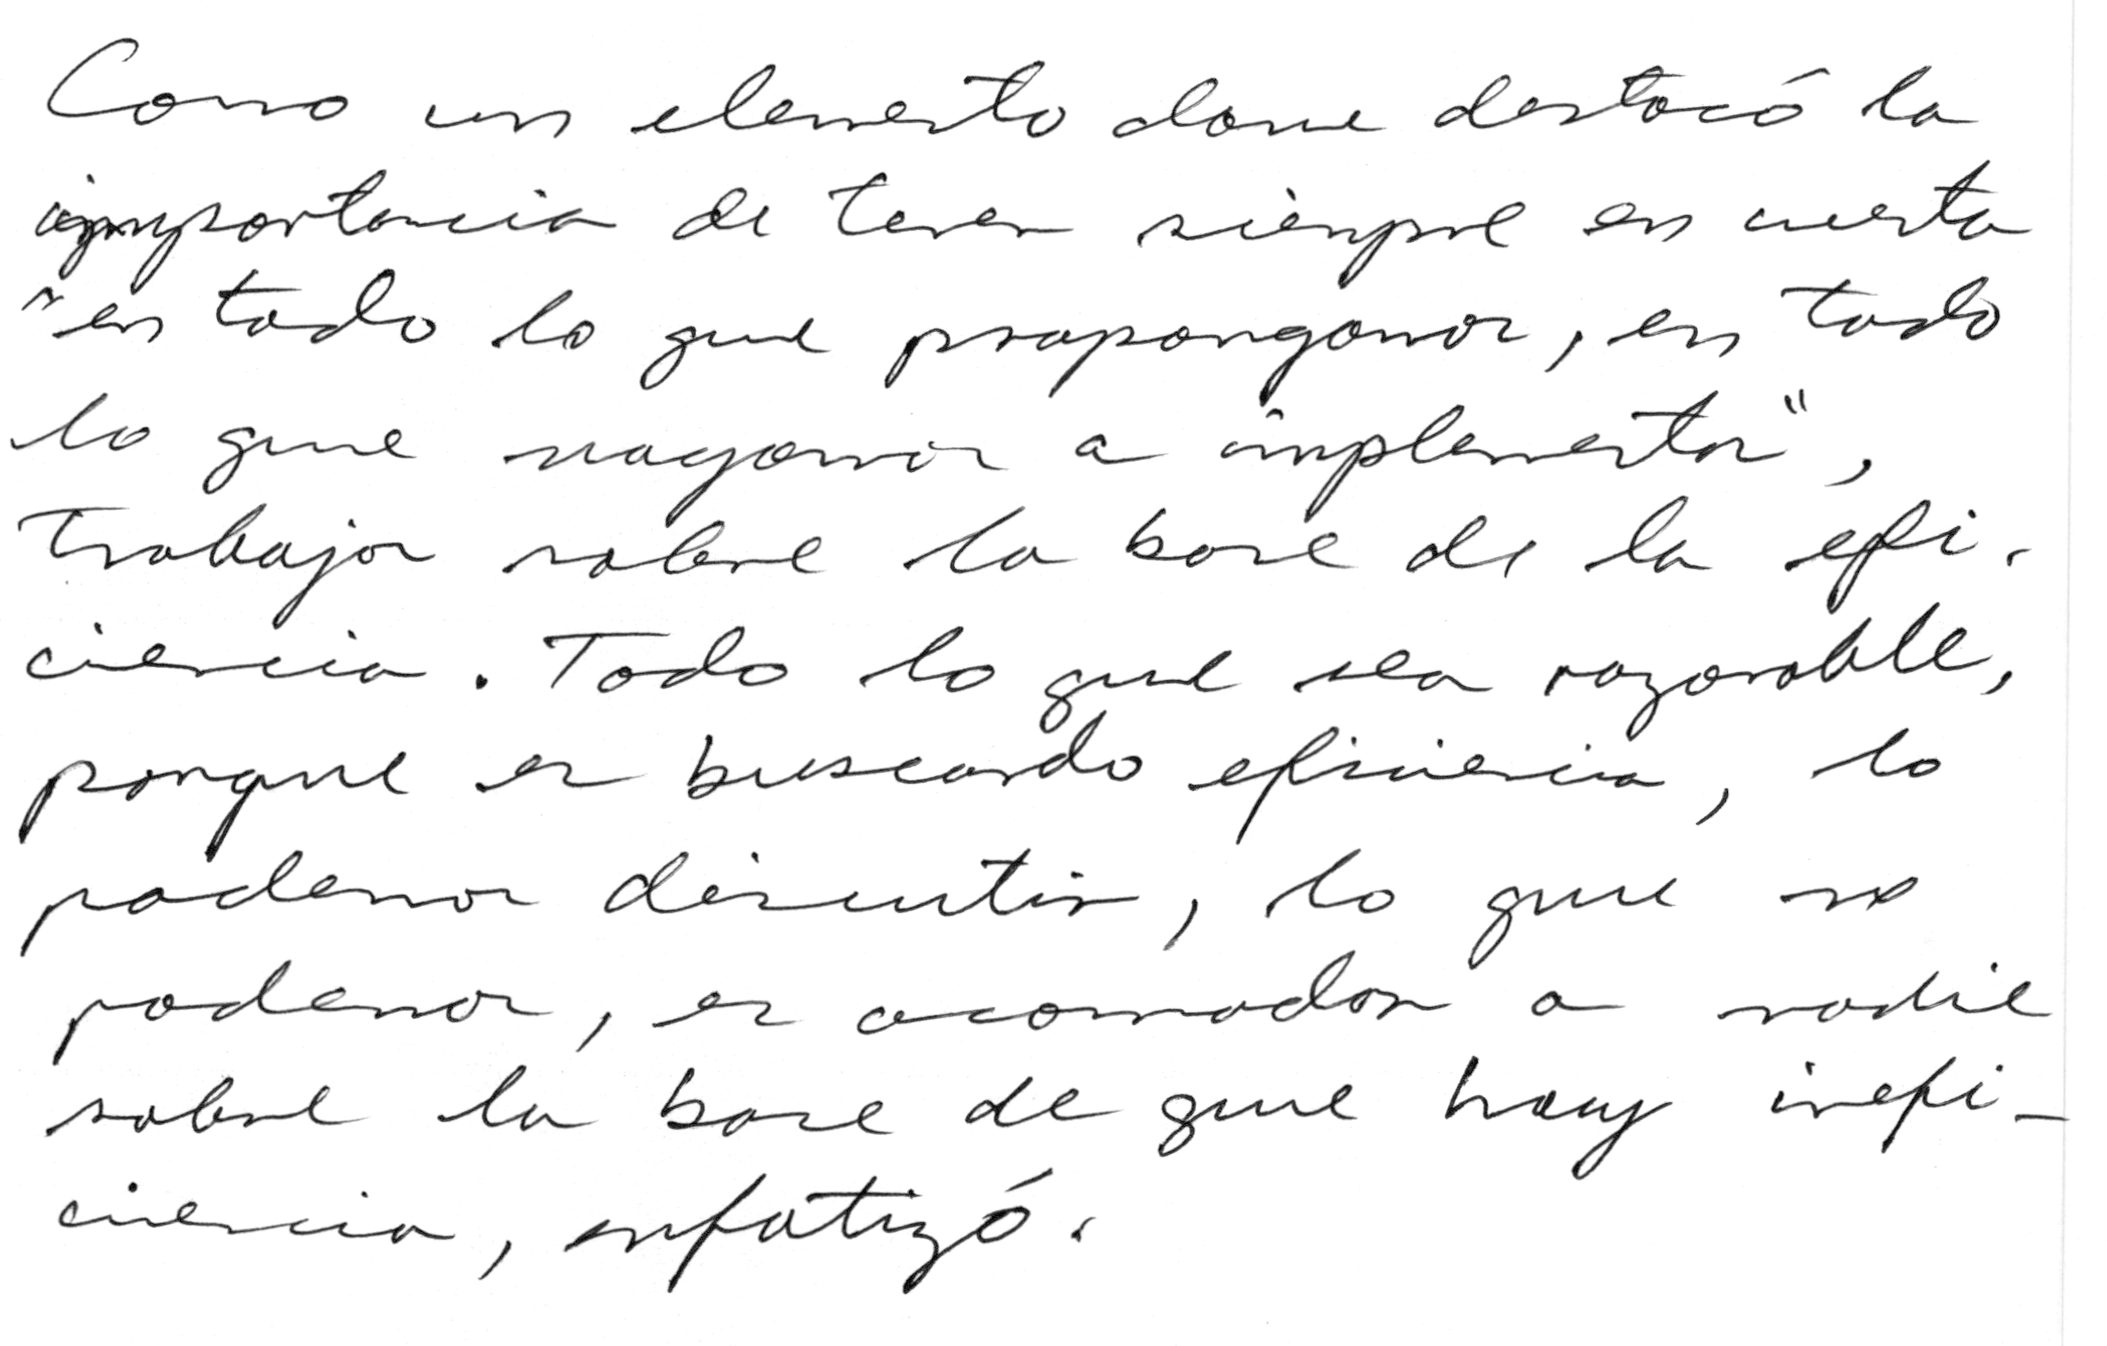 Como un elemento clave destacó la
importancia de tener siempre en cuenta
"en todo lo que propongamos, en todo
lo que vayamos a implementar",
trabajar sobre la base de la efi-
ciencia. Todo lo que sea razonable,
porque es buscando eficiencia, lo
podemos discutir, lo que no
podemos, es acomodar a nadie
sobre la base de que hay inefi-
ciencia, enfatizó.